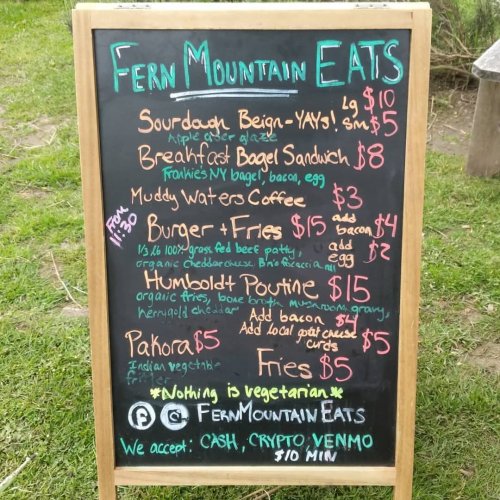 FERN MOUNTAIN EATS
Sourdough Beign-YAYs! Lg $10
Sm $5
Apple cider glaze
Breakfast Bagel Sandwich $8
Frankie's NY bagel, bacon, egg
Muddy Waters Coffee $3
From 11:30
Burger + Fries $15 add bacon $4
1/3 Lb 100% grass fed beef patty, add egg $2
organic cheddar cheese, Bno's focaccia roll
Humboldt Poutine $15
organic fries, bone broth mushroom gravy,
kerrygold cheddar
Add bacon $4
Add local goat cheese curds $5
Pakora $5
Indian vegetable fritter
Fries $5
*Nothing is vegetarian*
f FERNMOUNTAINEATS
We accept: CASH, CRYPTO, VENMO
$10 MIN